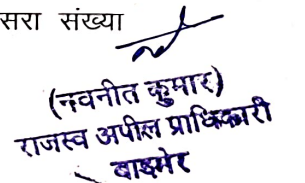 सरा संख्या
(नवनीत कुमार)
राजस्व अपील प्राधिकारी
बाड़मेर